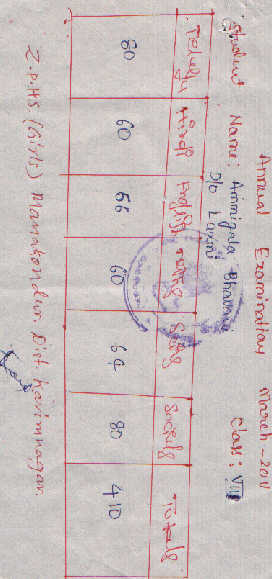 Annual Examination March-2011
Student Name: Ammigalla Bhavani Class: VIII
D/o Laxmi
Telugu Hindi English Maths S/S Socials Totals
80 60 66 60 64 80 410
Z.P.H.S (Girls) Manakondur Dist. Karimnagar